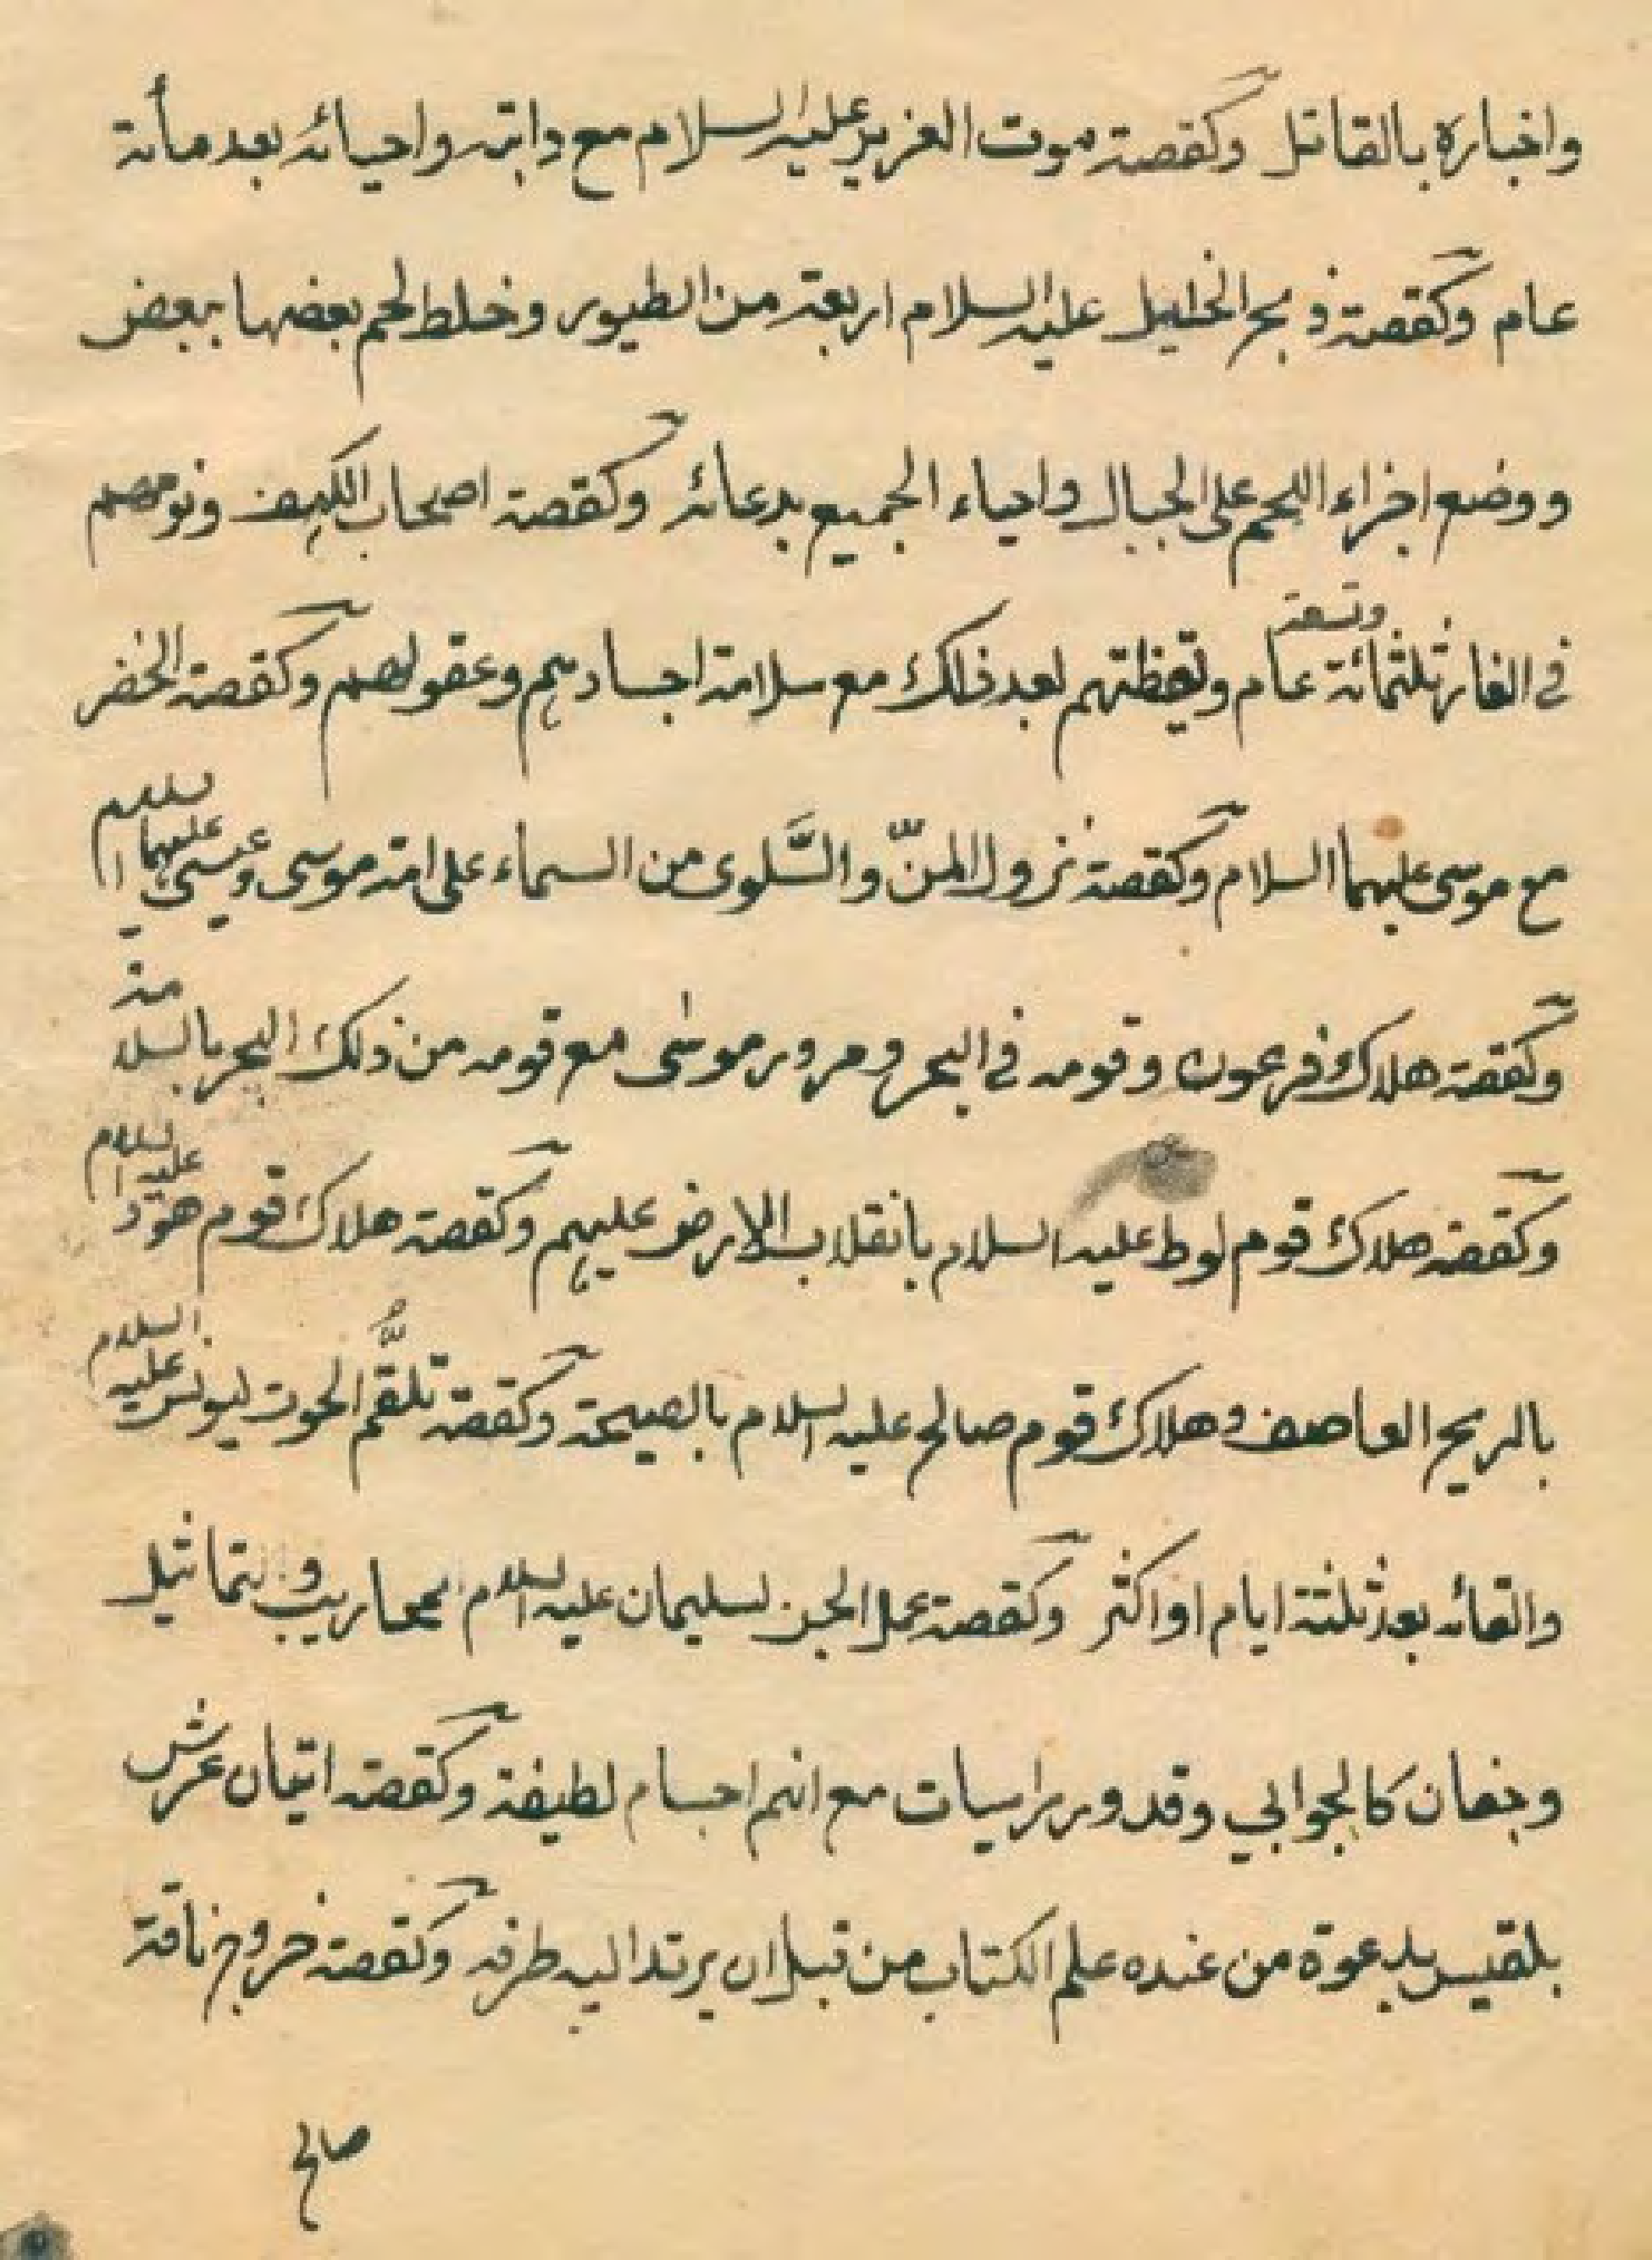 واخباره بالقاتل وكقصة موت العزير عليه السلام مع دابته واحيائه بعد مأتة
عام وكقصة ذبح الخليل عليه السلام اربعة من الطيور وخلط لحم بعضها ببعض
ووضع اجزاء اللحم على الجبال واحياء الجميع بدعائه وكقصة اصحاب الكهف ونومهم
في الغار ثلثمائة وتسعة عام ويقظتهم بعد ذلك مع سلامة اجسادهم وعقولهم وكقصة الخضر
مع موسى عليهما السلام وكقصة نزول المنّ والسَّلوى من السماء على امة موسى وعيسى عليهما السلام
وكقصة هلاك فرعون وقومه في البحر ومرور موسى مع قومه من ذلك البحر بالسلامة
وكقصة هلاك قوم لوط عليه السلام بانقلاب الارض عليهم وكقصة هلاك قوم هود عليه السلام
بالريح العاصف وهلاك قوم صالح عليه السلام بالصيحة وكقصة تلقُّم الحوت ليونس عليه السلام
والقائه بعد ثلثة ايام او اكثر وكقصة عمل الجن لسليمان عليه السلام المحاريب والتماثيل
وجفان كالجوابي وقدور راسيات مع انهم اجسام لطيفة وكقصة اتيان عرش
بلقيس بدعوة من عنده علم الكتاب من قبل ان يرتد اليه طرفه وكقصة خروج ناقة
صالح